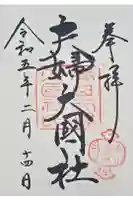 奉拝
夫婦大國社
令和五年二月十四日